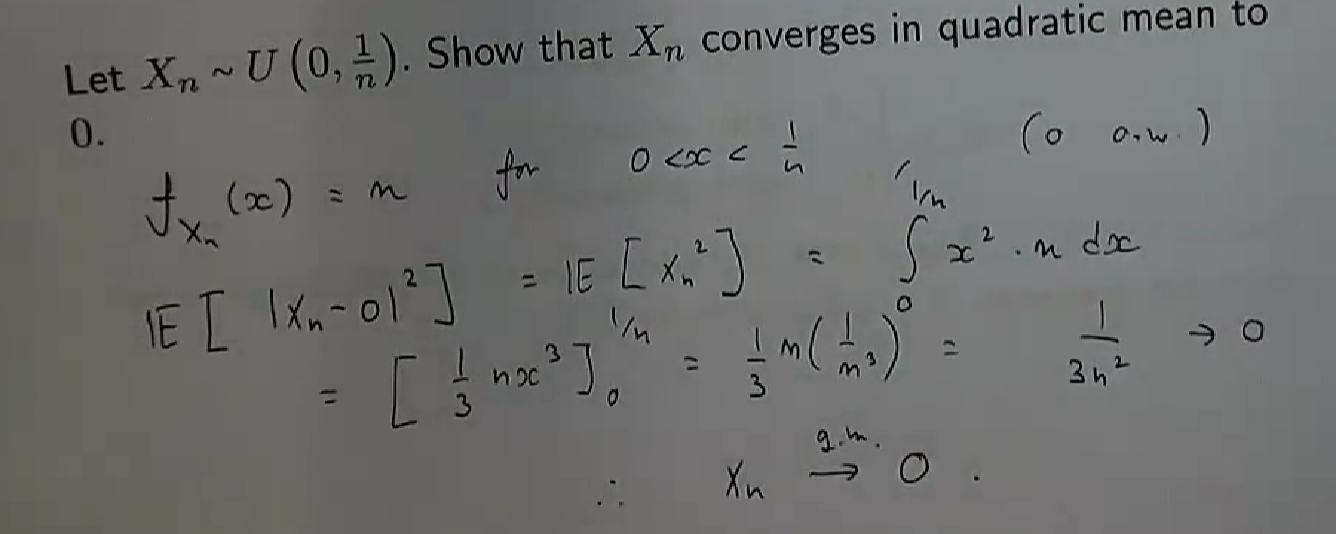 Let Xₙ ~ U (0, 1/n). Show that Xₙ converges in quadratic mean to
0.
f_{Xₙ}(x) = n for 0 < x < 1/n (0 o.w.)
𝔼[ |Xₙ - 0|² ] = 𝔼[Xₙ²] = ∫₀^{1/n} x² · n dx
= [ 1/3 nx³ ]₀^{1/n} = 1/3 n(1/n³) = 1/(3n²) → 0
∴ Xₙ →^{q.m.} 0 .